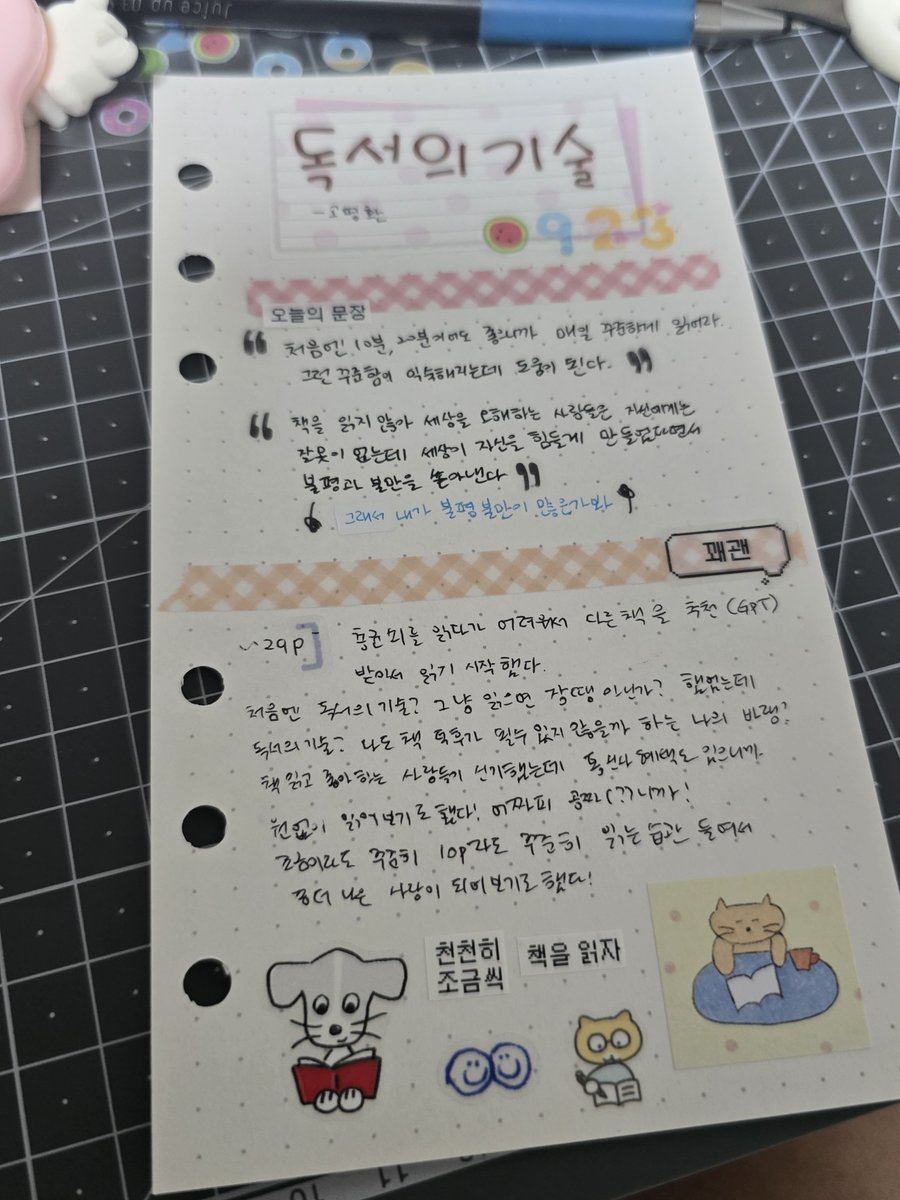 Juice up 03
독서의 기술
-고명환
923
오늘의 문장
" 처음엔 10분, 20분이어도 좋으니까 매일 꾸준하게 읽어라.
그런 꾸준함이 익숙해지는데 도움이 된다. "
" 책을 읽지 않아 세상을 오해하는 사람들은 자신에게는
잘못이 없는데 세상이 자신을 힘들게 만들었다면서
불평과 불만을 쏟아낸다 "
그래서 내가 불평불만이 많은가봐
꽤괜
~29p
읽다가 어려워서 다른 책을 추천 (GPT)
받아서 읽기 시작했다.
처음엔 독서의 기술? 그냥 읽으면 장땡 아닌가? 했었는데
독서의 기술? 나도 책 덕후가 될수 있지 않을까 하는 나의 바램?
책 읽고 좋아하는 사람들이 신기했는데 혜택도 있으니까
원없이 읽어보기로 했다! 어짜피 공짜(??)니까!
조금이라도 꾸준히 10p라도 꾸준히 읽는 습관 들여서
좀더 나은 사람이 되어보기로 했다!
천천히
조금씩
책을 읽자
10 11